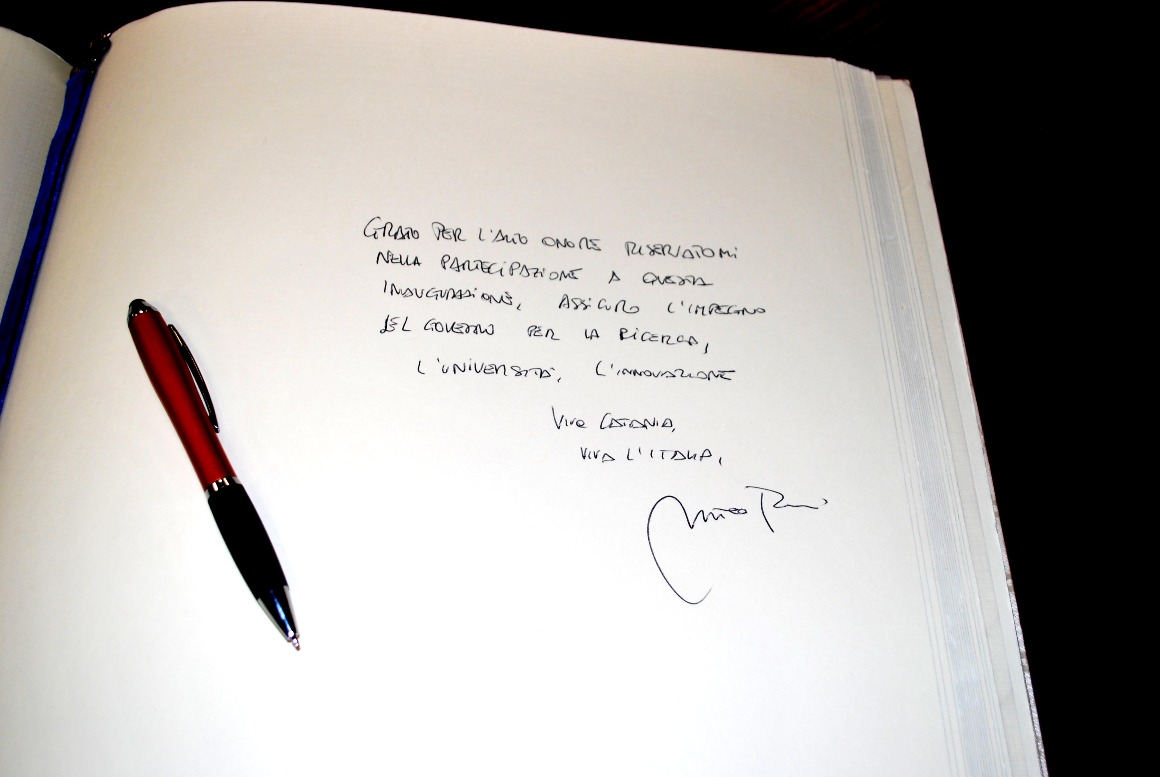 GRATO PER L'ALTO ONORE RISERVATOMI
NELLA PARTECIPAZIONE A QUESTA
INAUGURAZIONE, ASSICURO L'IMPEGNO
DEL GOVERNO PER LA RICERCA,
L'UNIVERSITÀ, L'INNOVAZIONE
Viva CATANIA,
VIVA L'ITALIA,
Matteo Renzi